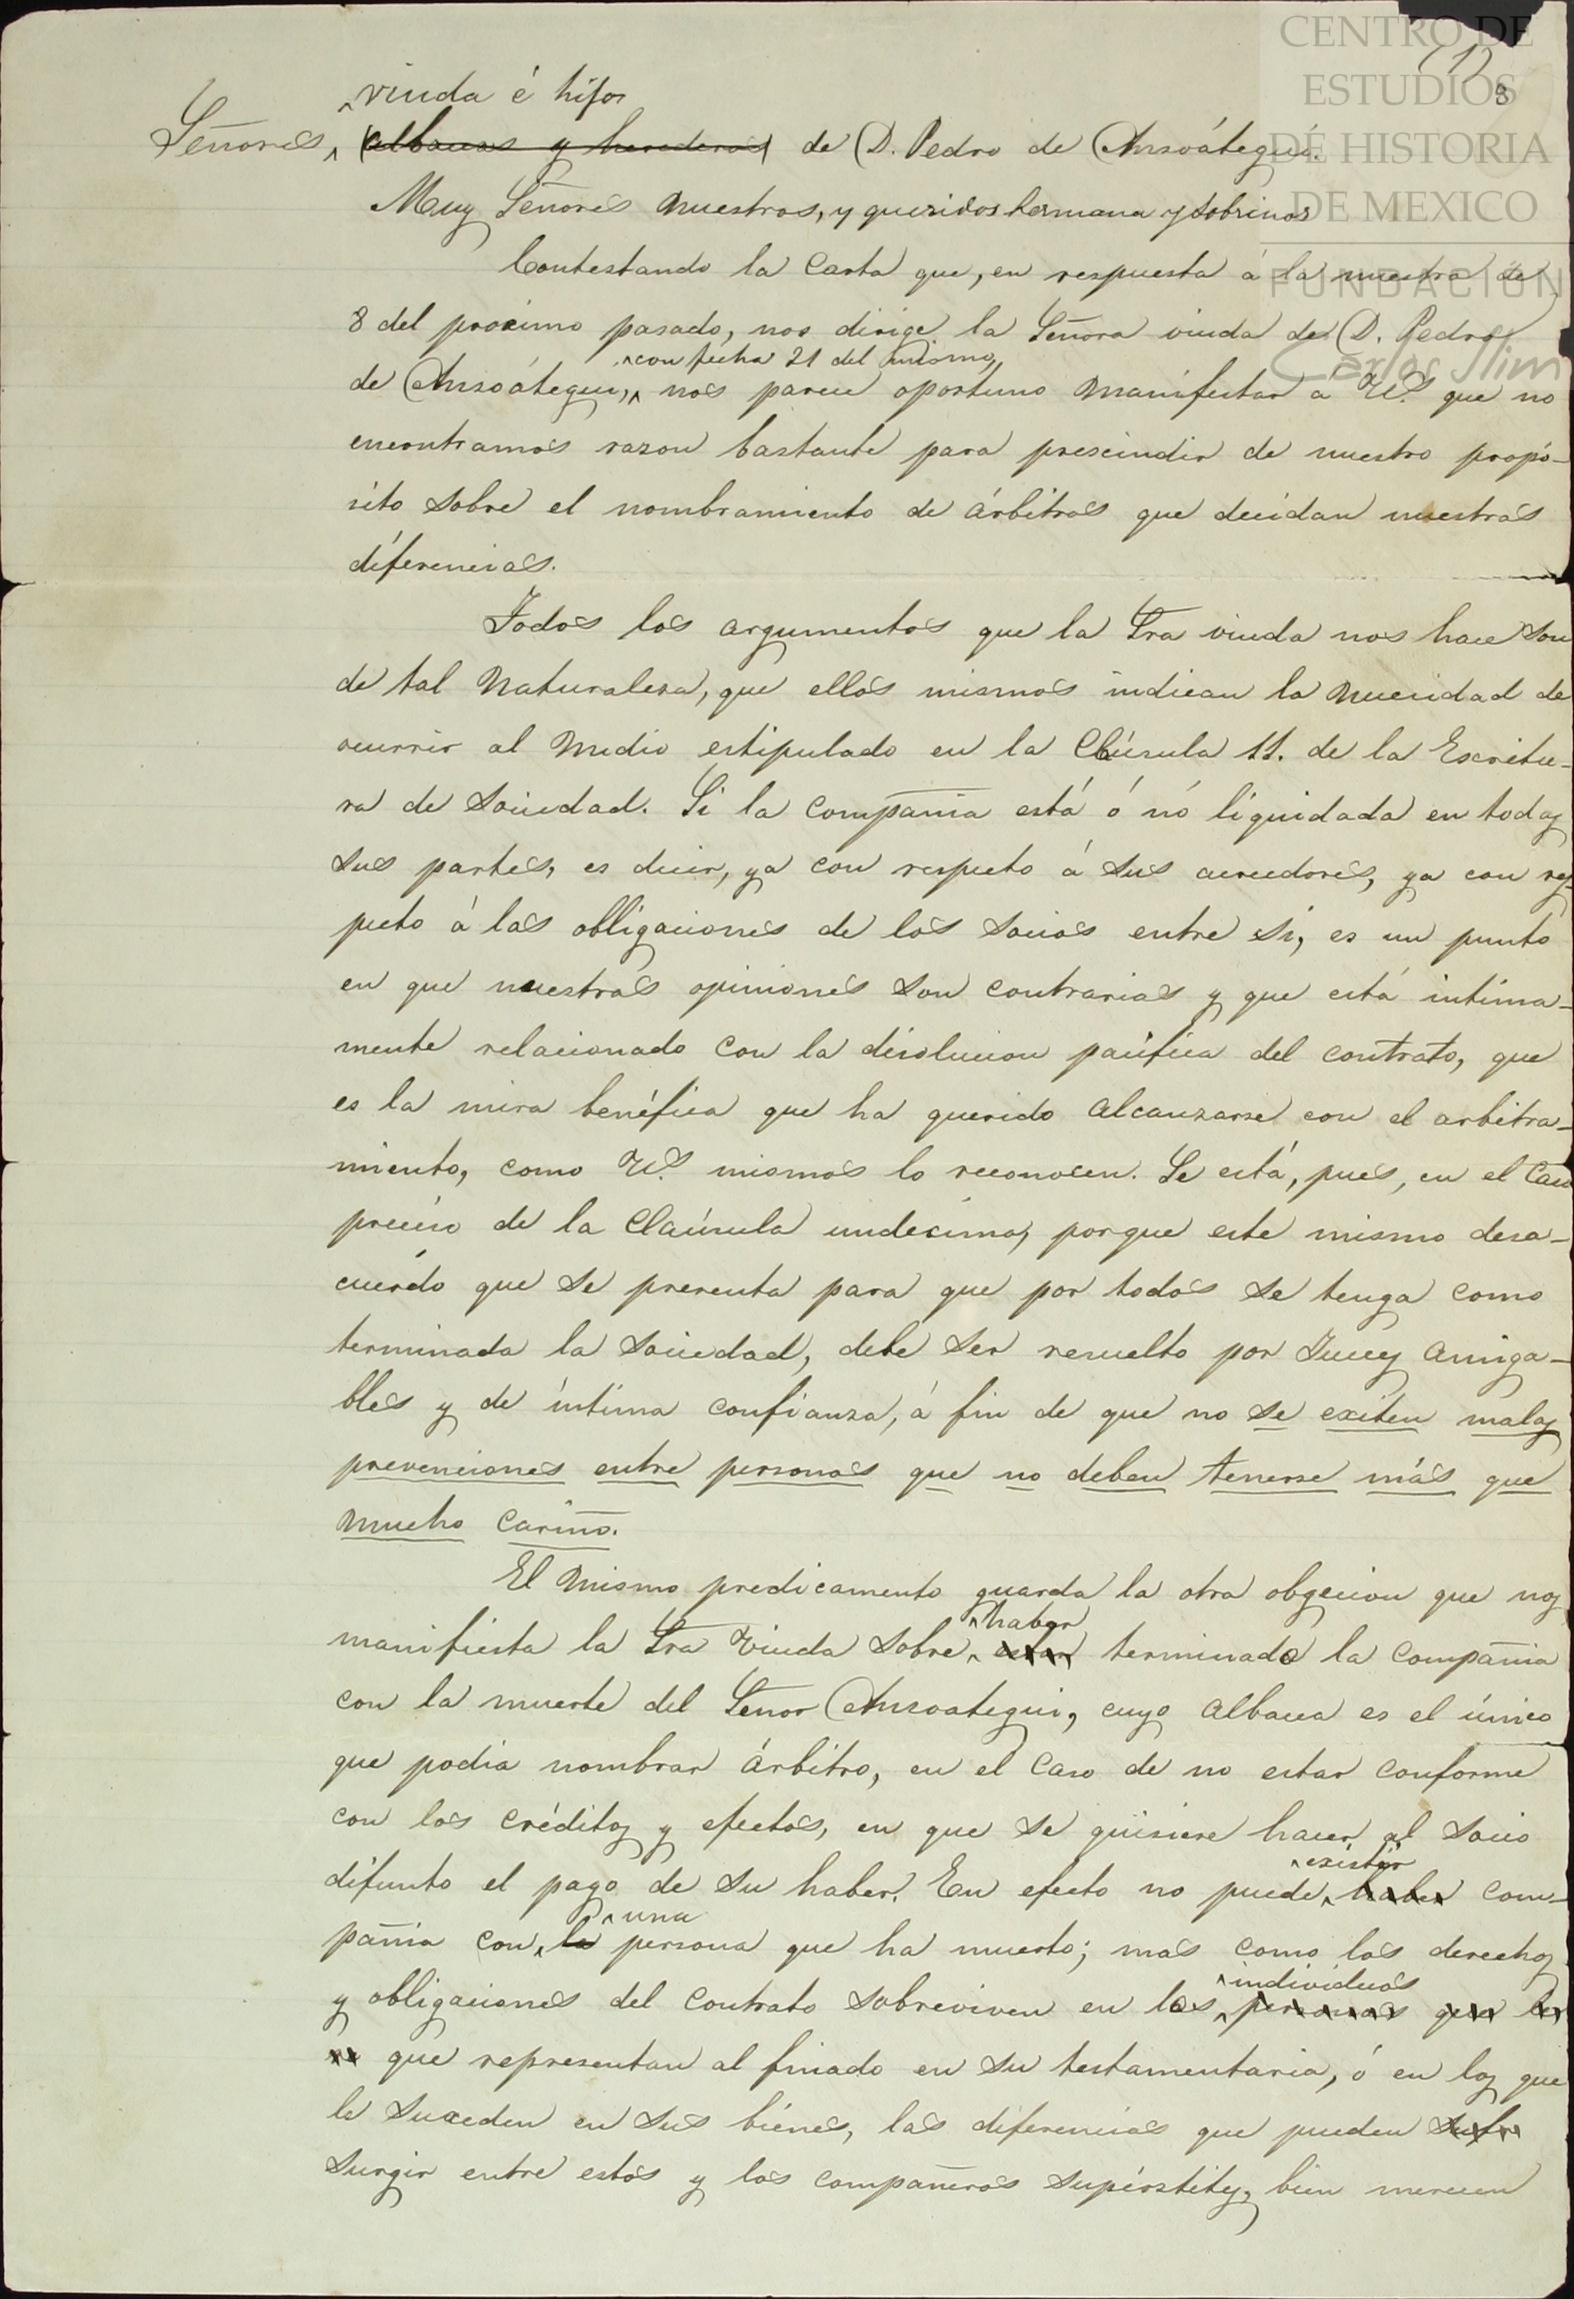 CENTRO DE
ESTUDIOS
DE HISTORIA
DE MEXICO
FUNDACIÓN
Carlos Slim
(1)
8
viuda é hijos
Señores, albaceas y herederos de D. Pedro de Ansoátegui.
Muy Señores nuestros, y queridos hermana y sobrinos
Contestando la Carta que, en respuesta á la nuestra de
8 del procsimo pasado, nos dirige la Señora viuda de D. Pedro
con fecha 21 del mismo,
de Ansoátegui, nos parece oportuno manifestar a Us. que no
encontramos razon bastante para prescindir de nuestro propó-
sito sobre el nombramiento de árbitros que decidan nuestras
diferencias.
Todos los argumentos que la Sra viuda nos hace son
de tal naturaleza, que ellos mismos indican la necesidad de
ocurrir al medio estipulado en la Claúsula 11. de la Escritu-
ra de Sociedad. Si la compañia está ó nó liquidada en todas
sus partes, es decir, ya con respecto á sus acreedores, ya con res-
pecto á las obligaciones de los Socios entre si, es un punto
en que nuestras opiniones son contrarias y que está íntima-
mente relacionado con la disolucion pacífica del contrato, que
es la mira benéfica que ha querido alcanzarse con el arbitra-
miento, como Us. mismos lo reconocen. Se está, pues, en el Caso
preciso de la Claúsula undecima, porque este mismo desa-
cuerdo que se presenta para que por todos se tenga como
terminada la Sociedad, debe ser resuelto por Jueces amiga-
bles y de íntima confianza, á fin de que no se exiten malas
prevenciones entre personas que no deben tenerse más que
mucho cariño.
El mismo predicamento guarda la otra obgecion que nos
haber
manifiesta la Sra Viuda sobre estar terminado la compañia
con la muerte del Señor Ansoategui, cuyo albacea es el único
que podia nombrar árbitro, en el caso de no estar conforme
con los créditos y efectos, en que se quisiere hacer al socio
existir
difunto el pago de su haber. En efecto no puede haber com-
una
pañia con la persona que ha muerto; mas como los derechos
individuos
y obligaciones del contrato sobreviven en los personas que
que representan al finado en su testamentaria, ó en los que
le suceden en sus bienes, las diferencias que pueden
surgir entre estos y los compañeros supérstites, bien merecen